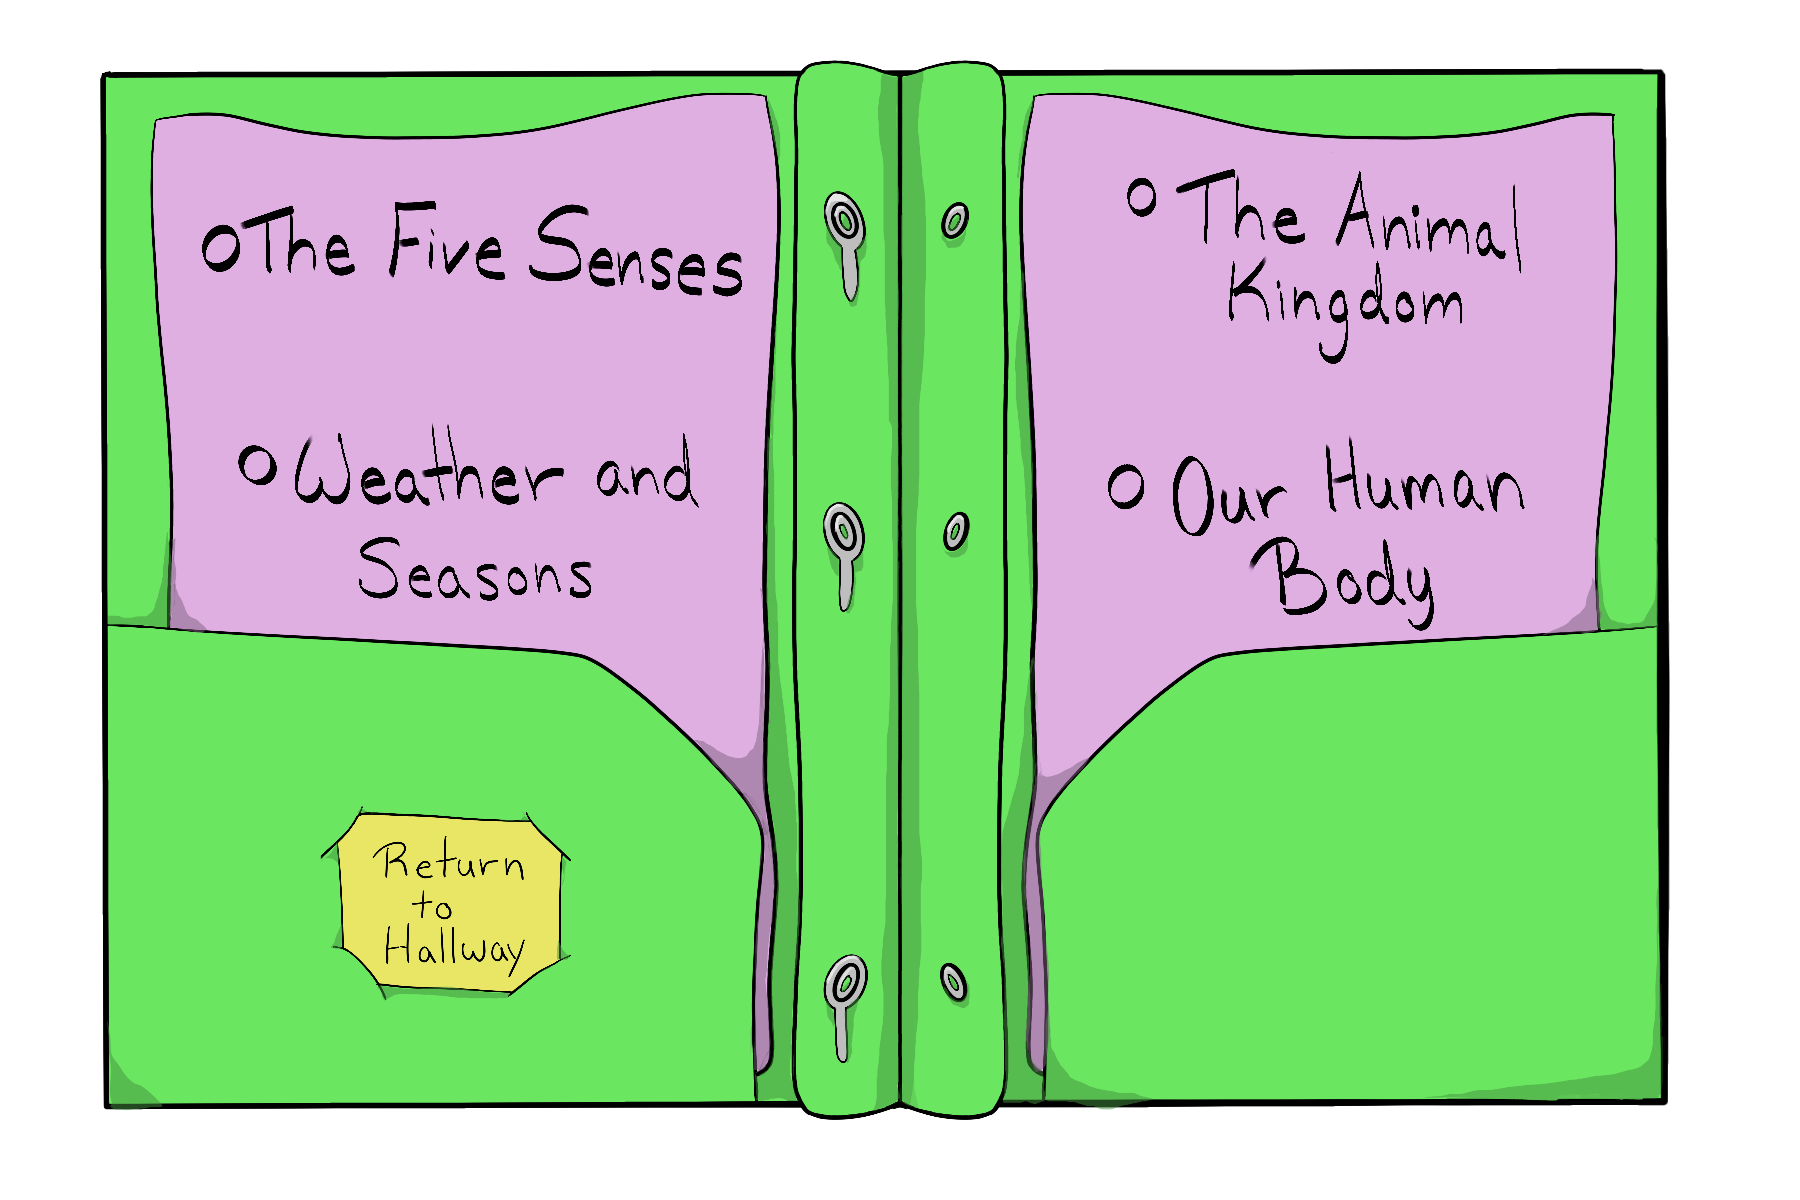 The Five Senses
Weather and
Seasons
Return
to
Hallway
The Animal
Kingdom
Our Human
Body